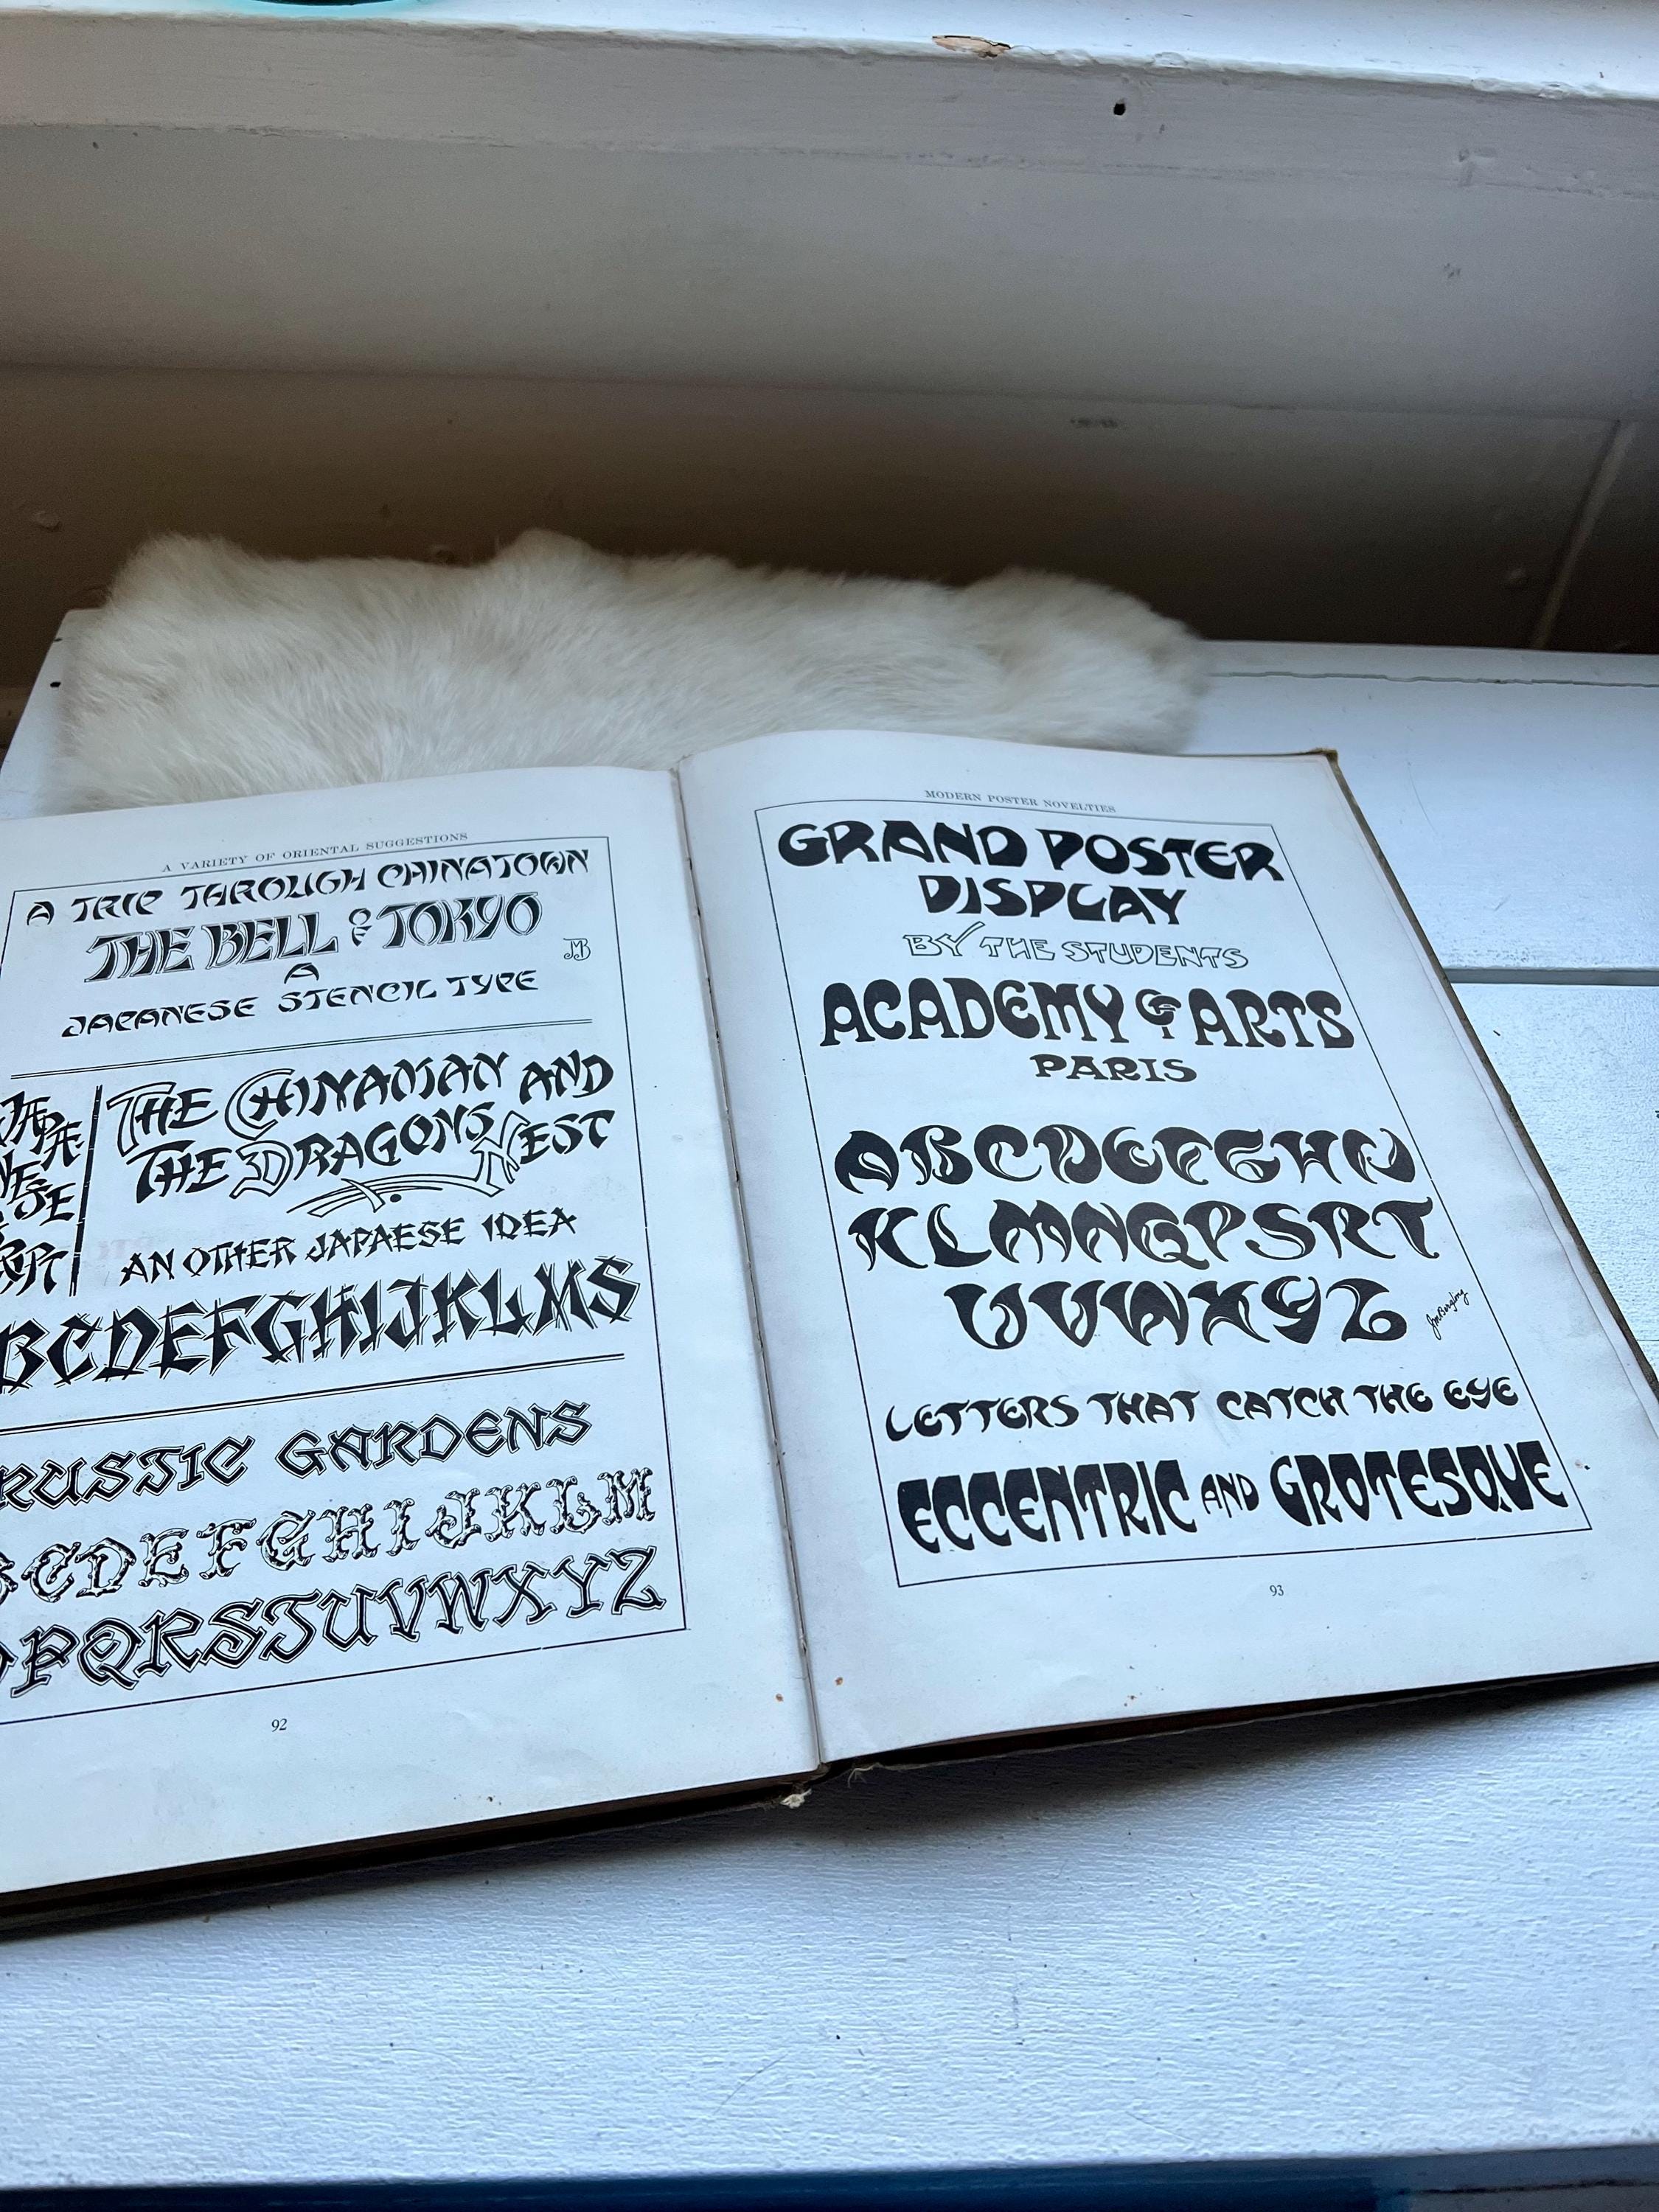 A VARIETY OF ORIENTAL SUGGESTIONS
A TRIP THROUGH CHINATOWN
THE BELL OF TOKYO
JMB
A
JAPANESE STENCIL TYPE
JAPA-
NE-
SE
THE CHINAMAN AND
THE DRAGONS NEST
AN OTHER JAPAESE IDEA
BCDEFGHIJKLMS
RUSTIC GARDENS
BCDEFGHIJKLM
OPQRSTUVWXYZ
92
MODERN POSTER NOVELTIES
GRAND POSTER
DISPLAY
BY THE STUDENTS
ACADEMY OF ARTS
PARIS
ABCDEFGHIJ
KLMNQPSRT
UVWXYZ
JM Bergling
LETTERS THAT CATCH THE EYE
ECCENTRIC AND GROTESQUE
93